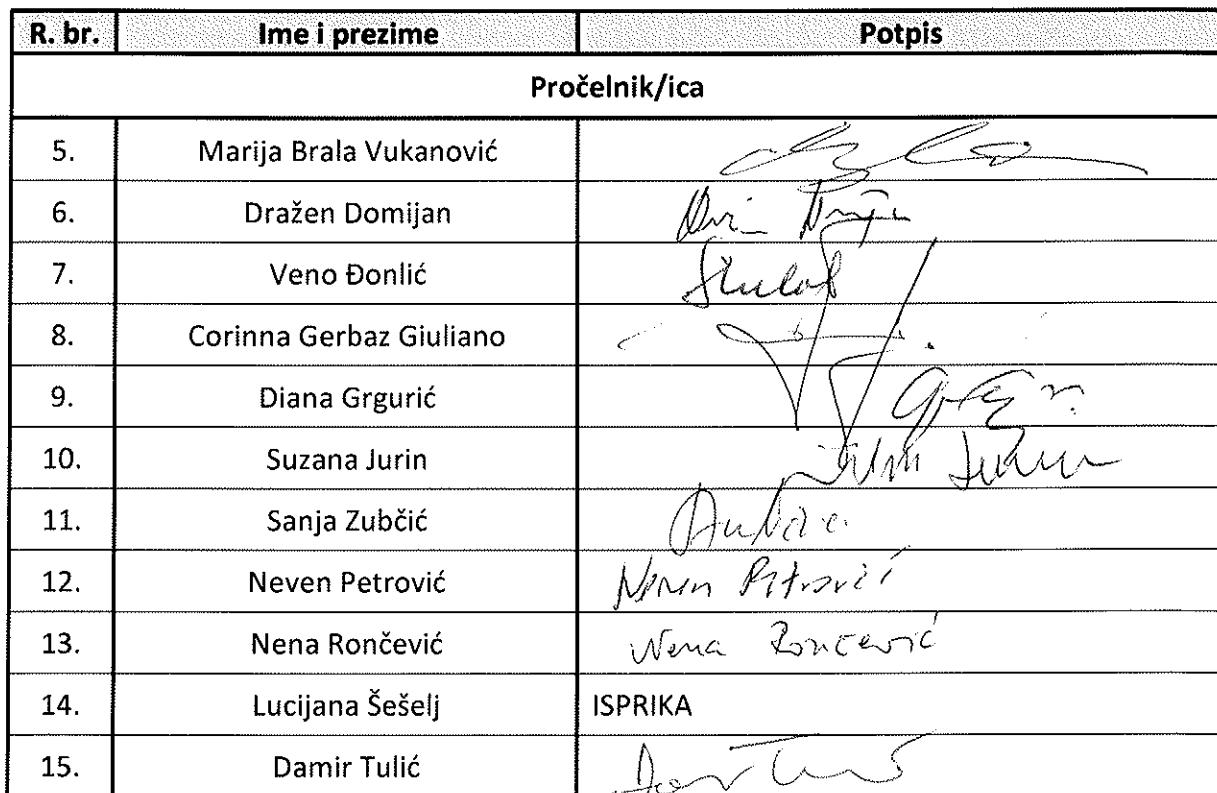 R. br. Ime i prezime Potpis
Pročelnik/ica
5. Marija Brala Vukanović
6. Dražen Domijan
7. Veno Đonlić
8. Corinna Gerbaz Giuliano
9. Diana Grgurić
10. Suzana Jurin
11. Sanja Zubčić
12. Neven Petrović Neven Petrović
13. Nena Rončević Nena Rončević
14. Lucijana Šešelj ISPRIKA
15. Damir Tulić